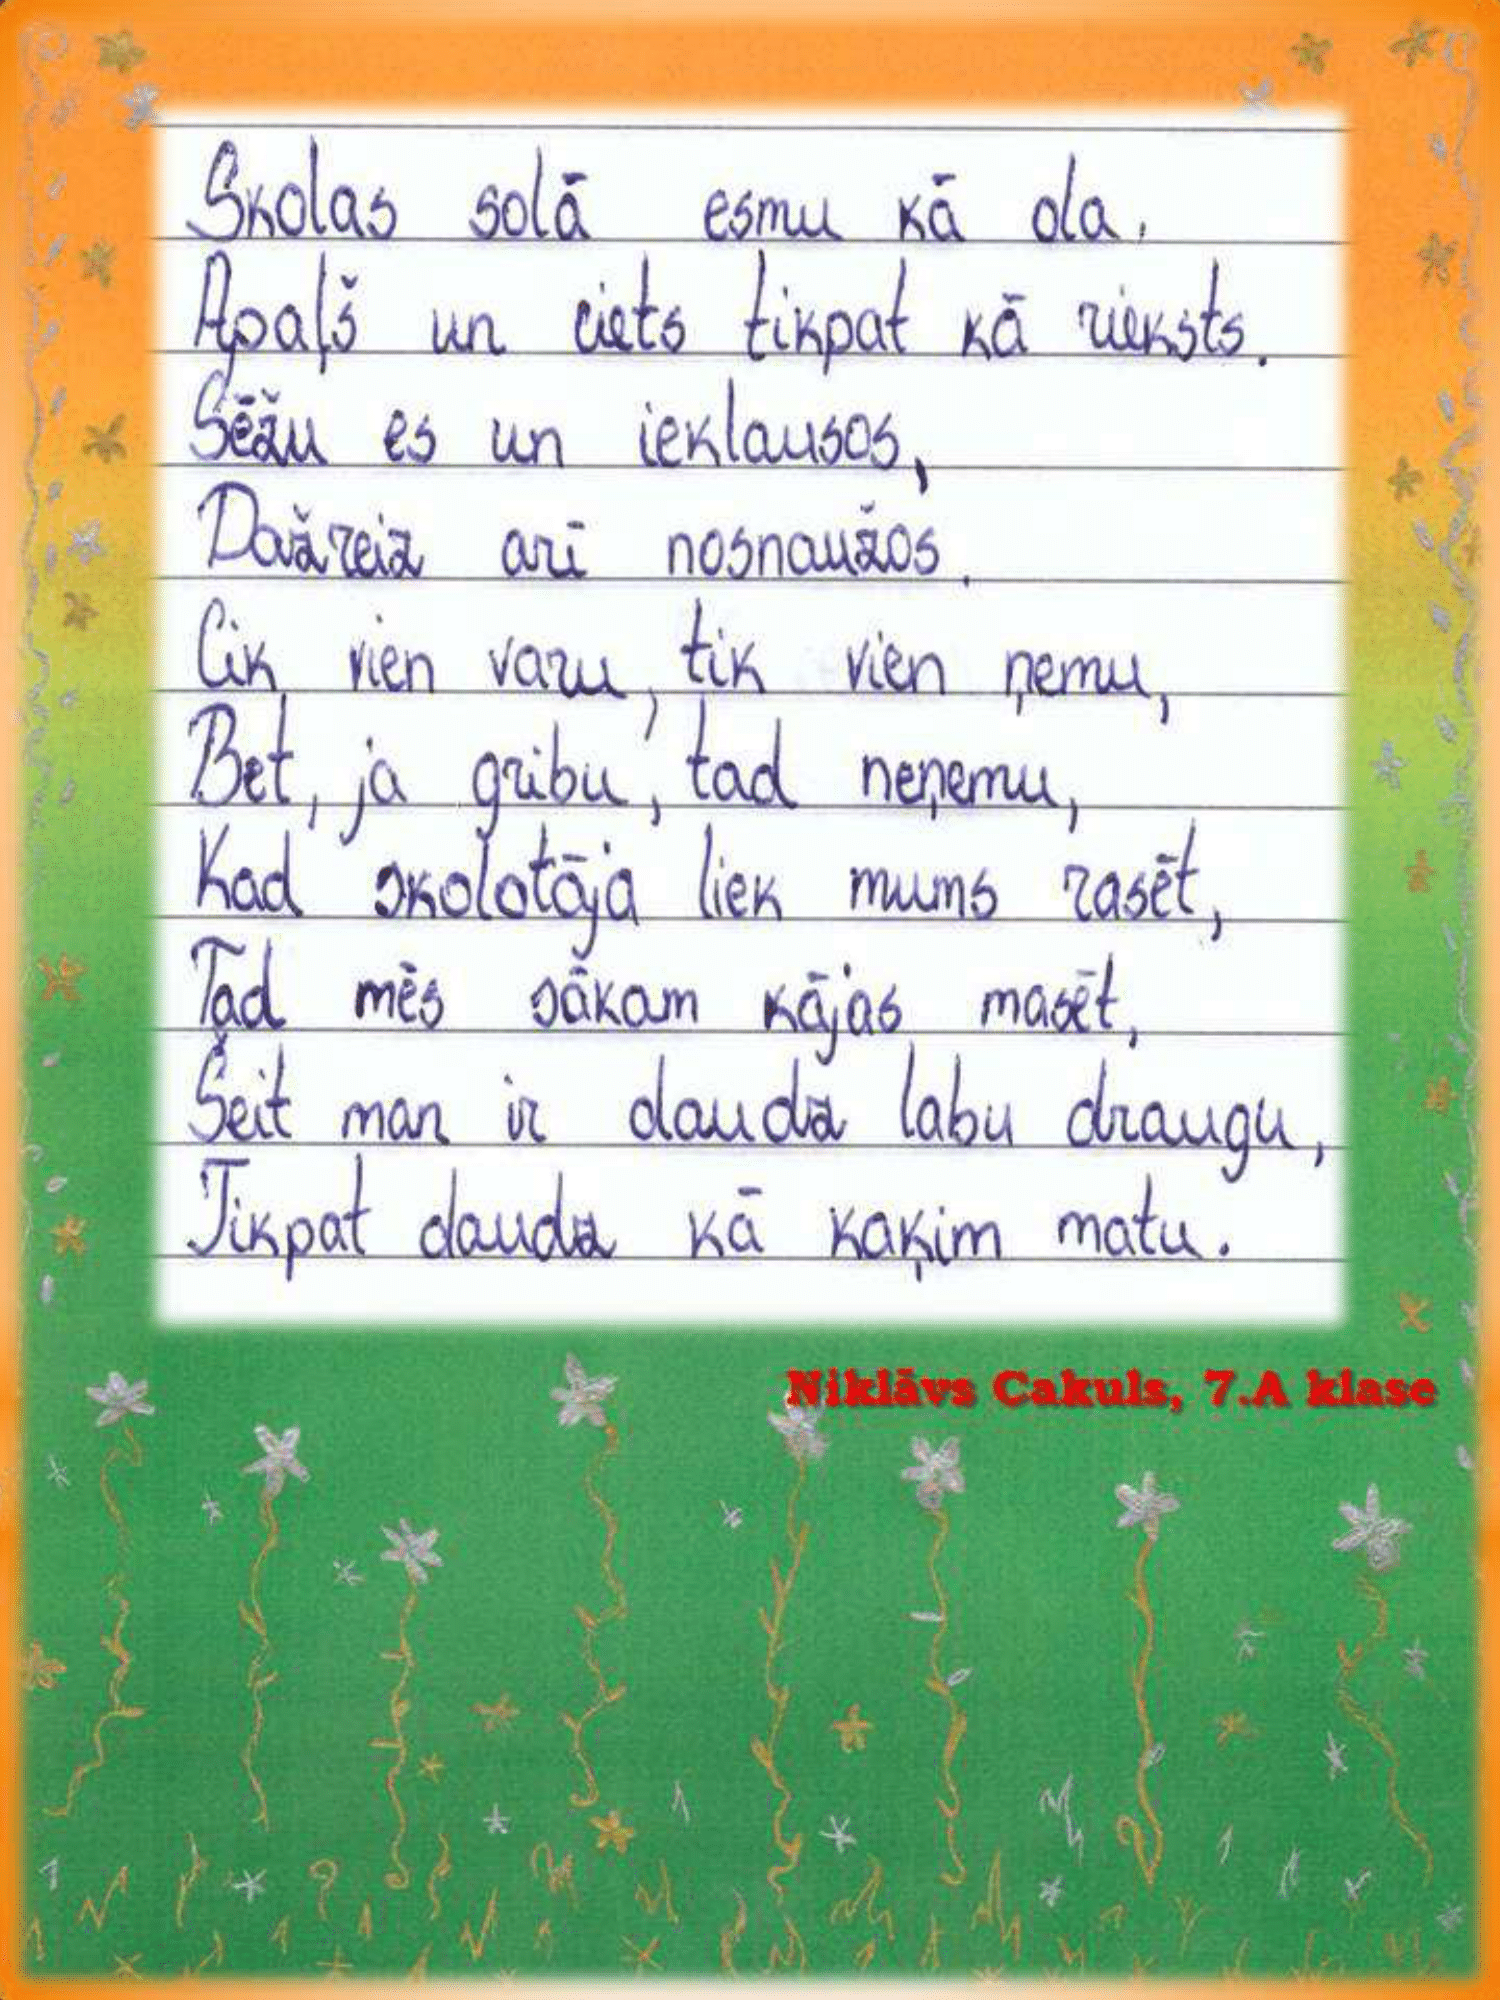 Skolas solā esmu kā ola,
Apaļš un ciets tikpat kā rieksts.
Sēžu es un ieklausos,
Dažreiz arī nosnaužos.
Cik vien varu, tik vien ņemu,
Bet, ja gribu, tad neņemu,
Kad skolotāja liek mums rasēt,
Tad mēs sākam kājas masēt,
Šeit man ir daudz labu draugu,
Tikpat daudz kā kaķim matu.
Niklāvs Cakuls, 7.A klase